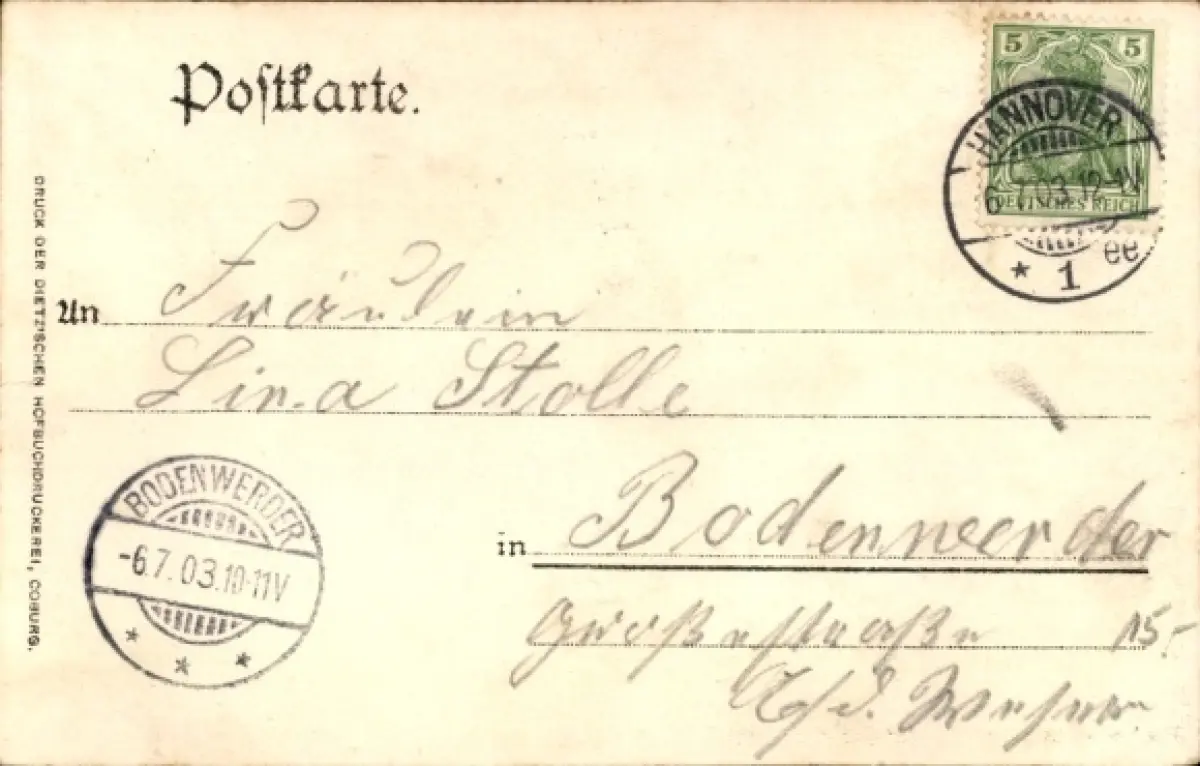 Postkarte.
5 5
DEUTSCHES REICH
HANNOVER
6.7.03.12-1V
* 1 ee
An Fräulein
Lina Stolle
in Bodenwerder
Großestraße 15.-
a/d. Weser
BODENWERDER
-6.7.03.10-11V
* * *
DRUCK DER DIETZ'SCHEN HOFBUCHDRUCKEREI, COBURG.